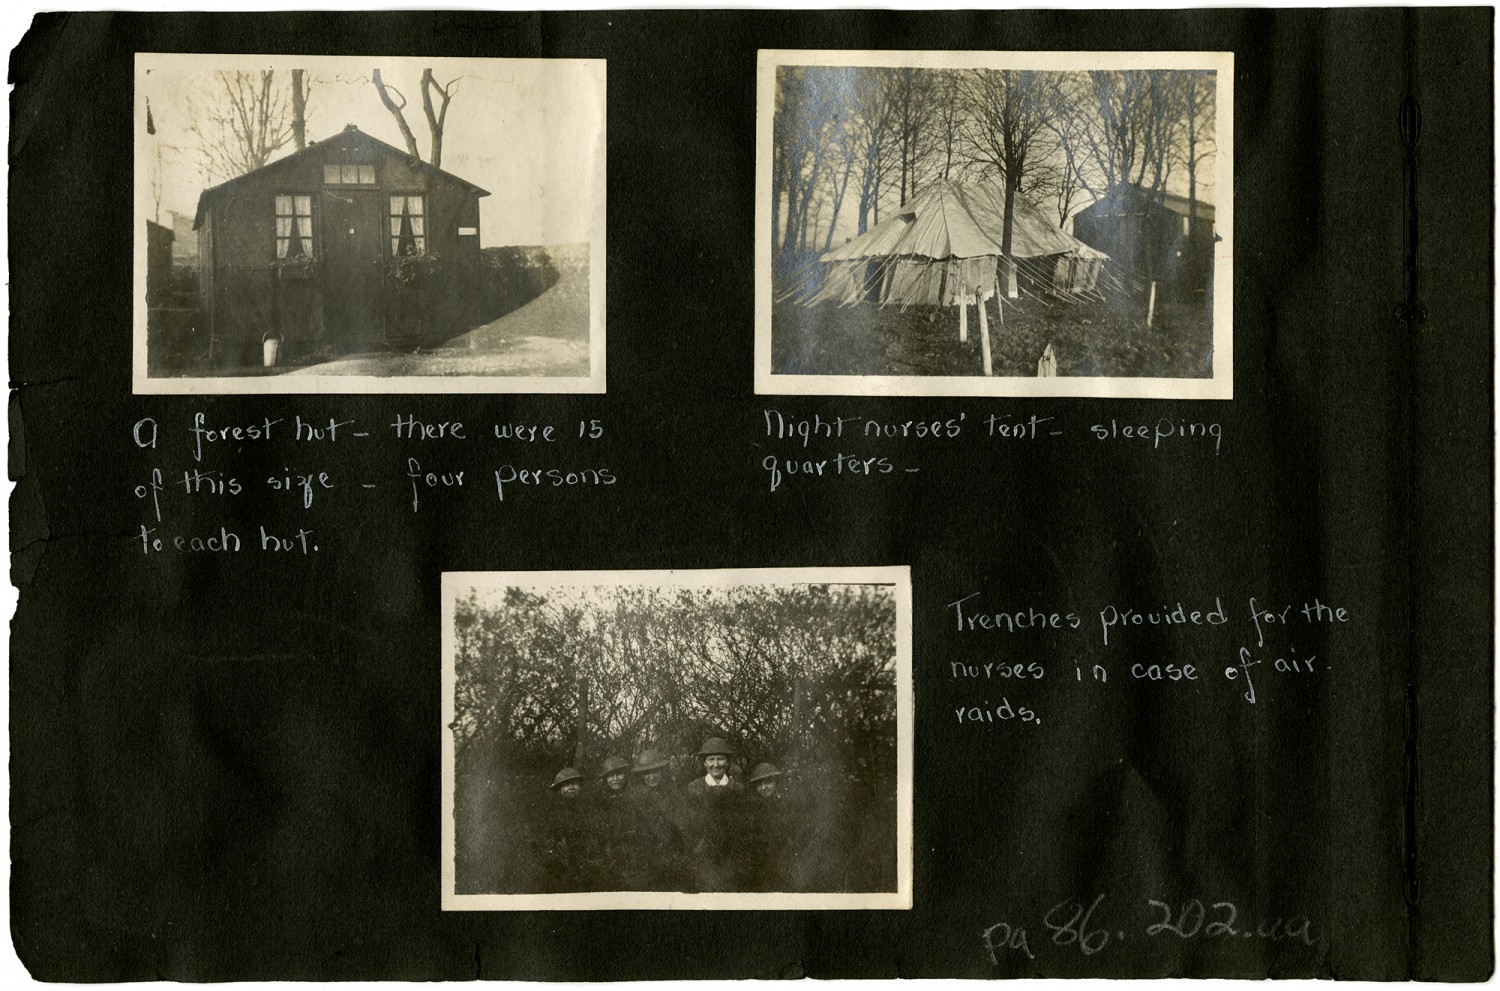 A forest hut – there were 15
of this size – four persons
to each hut.
Night nurses' tent – sleeping
quarters –
Trenches provided for the
nurses in case of air
raids.
pa 86.202.aa